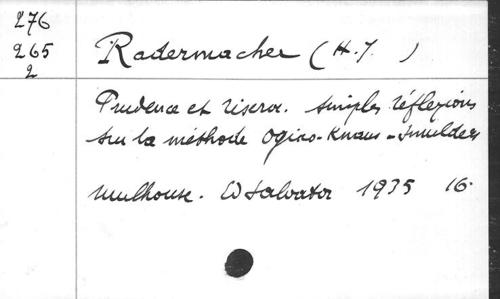 276
265
2
Radermacher (H.J. )
Prudence et . Simples réflexions
sur la méthode Ogino-Knaus-Smulders
Mulhouse. Ed Salvator 1935 16.